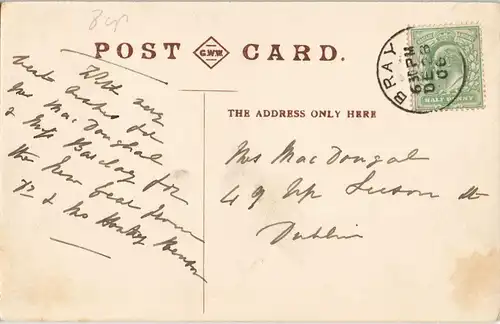 POST CARD.
G.W.W.
THE ADDRESS ONLY HERE
BRAY
6 30 PM
DE 28
06
HALFPENNY
With very
best wishes for
Mrs MacDougal
& Miss Barclay for
the New Year from
Dr & Mrs
Mrs MacDougal
49 Up Leeson St
Dublin